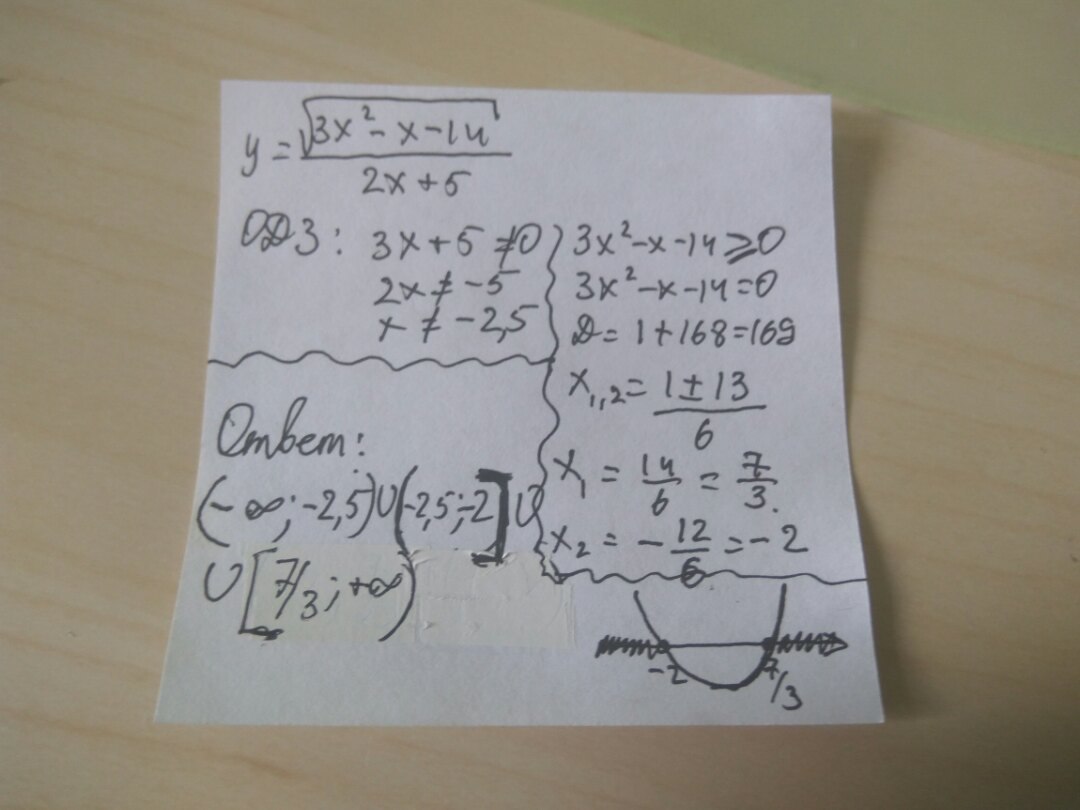 y = √(3x² - x - 14) / (2x + 5)
ОДЗ: 3x + 5 ≠ 0
2x ≠ -5
x ≠ -2,5
3x² - x - 14 ≥ 0
3x² - x - 14 = 0
D = 1 + 168 = 169
x₁,₂ = (1 ± 13) / 6
x₁ = 14/6 = 7/3.
x₂ = -12/6 = -2
-2 7/3
Ответ:
(-∞; -2,5) ∪ (-2,5; -2] ∪
∪ [7/3; +∞)